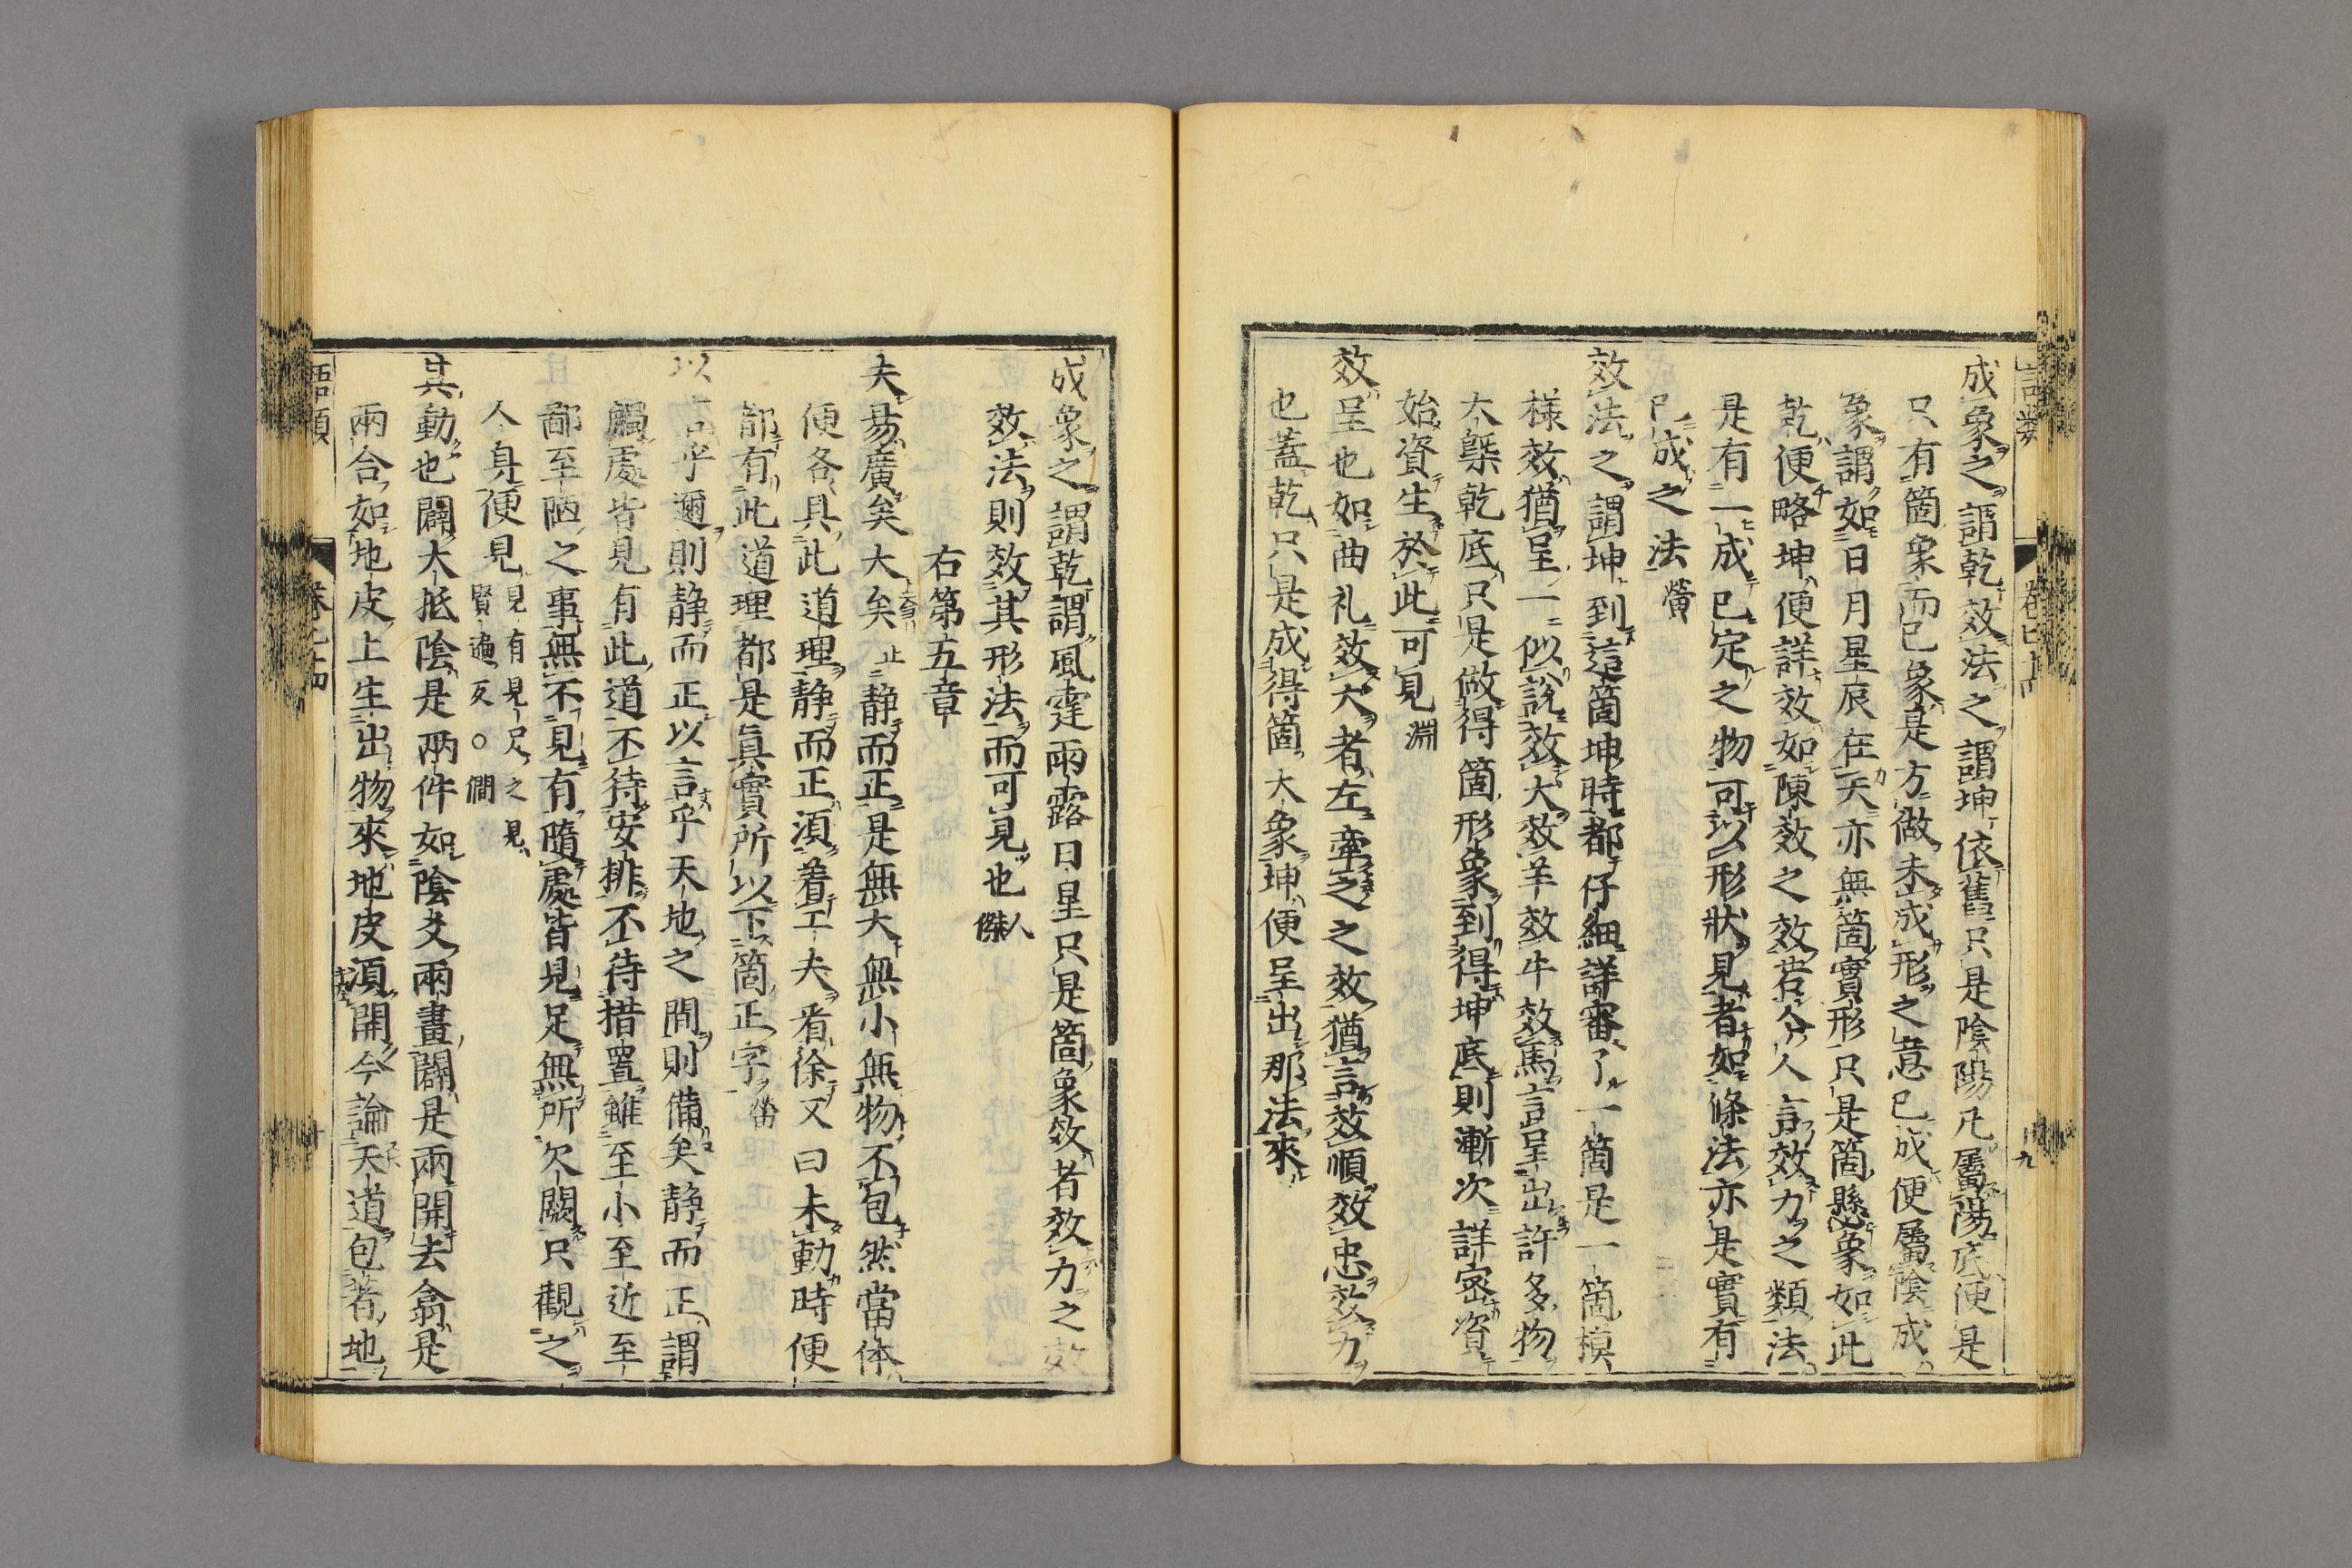 成象之謂乾效法之謂坤依舊只是陰陽凡屬陽底便是
只有箇象而已象是方做未成形之意已成便屬陰成
象謂如日月星辰在天亦無箇實形只是箇懸象如此
乾便略坤便詳效如陳效之效若今人言效力之類法
是有一成已定之物可以形狀見者如條法亦是實有
已成之法 㽦
效法之謂坤到這箇坤時都仔細詳審了一箇是一箇模
樣效猶呈一似說效犬效羊效牛效馬言呈出許多物
大槩乾底只是做得箇形象到得坤底則漸次詳密資
始資生於此可見 淵
效呈也如曲礼效犬者左牽之之效猶言效順效忠效力
也蓋乾只是成得箇大象坤便呈出那法來
成象之謂乾謂風霆雨露日星只是箇象效者效力之效
效法則效其形法而可見也 人傑
右第五章
夫易廣矣大矣 止 静而正是無大無小無物不包然當体
便各具此道理静而正須着工夫看徐又曰未動時便
都有此道理都是眞實所以下箇正字 㽦
以言乎邇則静而正以言乎天地之間則備矣静而正謂
觸處皆見有此道不待安排不待措置雖至小至近至
鄙至陋之事無不見有隨處皆見足無所欠闕只觀之
人身便見 見有見足之見 賢遍反○僩
其動也闢大抵陰是兩件如陰爻兩畫闢是兩開去翕是
兩合如地皮上生出物來地皮須開今論天道包著地